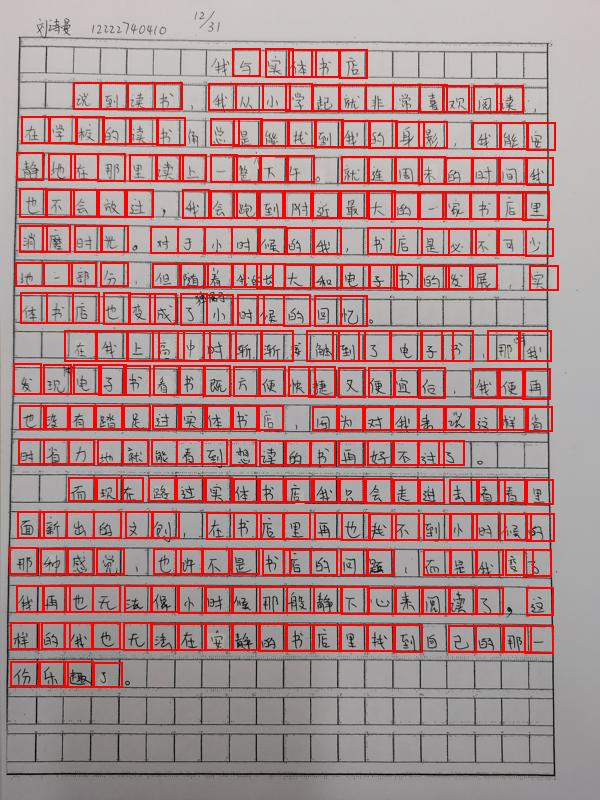 刘诗曼 12222740410 12/31
我与实体书店
说到读书，我从小学起就非常喜欢阅读，
在学校的读书角总是能找到我的身影，我能安
静地在那里读上一整个下午。就连周末的时间我
也不会放过，我会跑到附近最大的一家书店里
消磨时光。对于小时候的我，书店是必不可少
地一部分，但随着我的长大和电子书的发展，实
体书店也变成了小时候的回忆。
在我上高中时渐渐接触到了电子书，那时我
发现电子书看书既方便快捷又便宜后，我便再
也没有踏足过实体书店，因为对我来说这样省
时省力地就能看到想读的书再好不过了。
而现在路过实体书店我只会走进去看看里
面新出的文创，在书店里再也找不到小时候的
那种感觉，也许不是书店的问题，而是我变了
我再也无法像小时候那般静下心来阅读了，这
样的我也无法在安静的书店里找到自己的那一
份乐趣了。